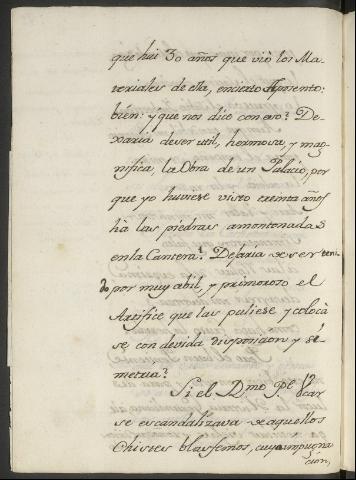 que hai 30 años que vió los Ma-
teriales de ella, en cierto Aposento:
bien: y que nos dice con eso? De-
xaria de ser util, hermosa, y mag-
nifica, la Obra de un Palacio, por
que yo huviese visto treinta años
há las piedras amontonadas
en la Cantera? Dejaria de ser teni-
do por muy abil, y primoroso el
Artifice que las puliese y colocá
se con devida disposicion y sí-
metria?
Si el Dmo. Pe. Vicar
se escandalizava de aquellos
Chistes blasfemos, cuya impugna
cion,